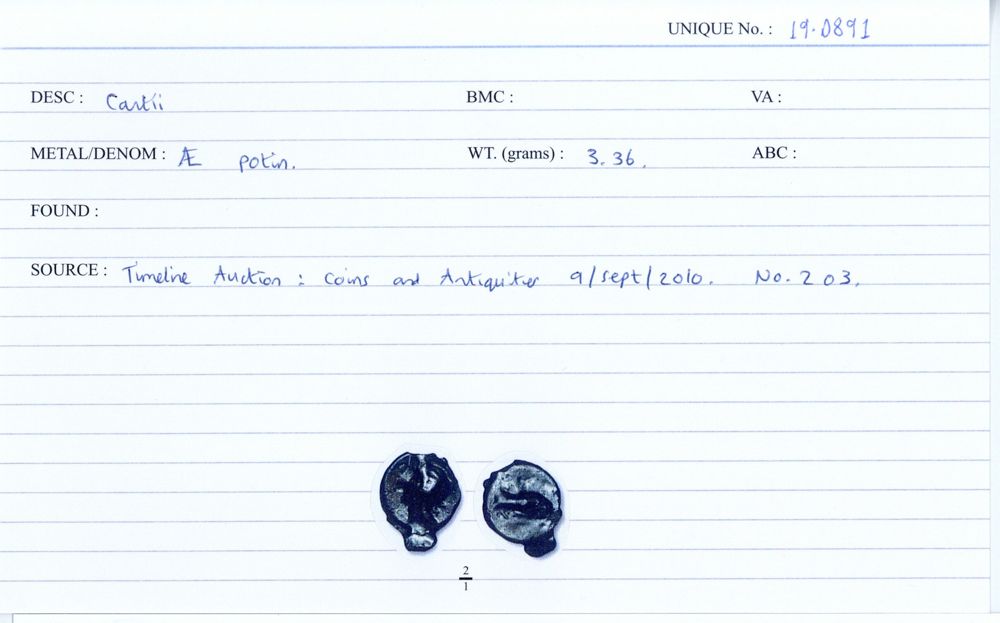 UNIQUE No. : 19.0891
DESC : Cantii BMC : VA :
METAL/DENOM : Æ potin. WT. (grams) : 3.36. ABC :
FOUND :
SOURCE : Timeline Auction : Coins and Antiquities 9/Sept/2010. No. 203.
2
1